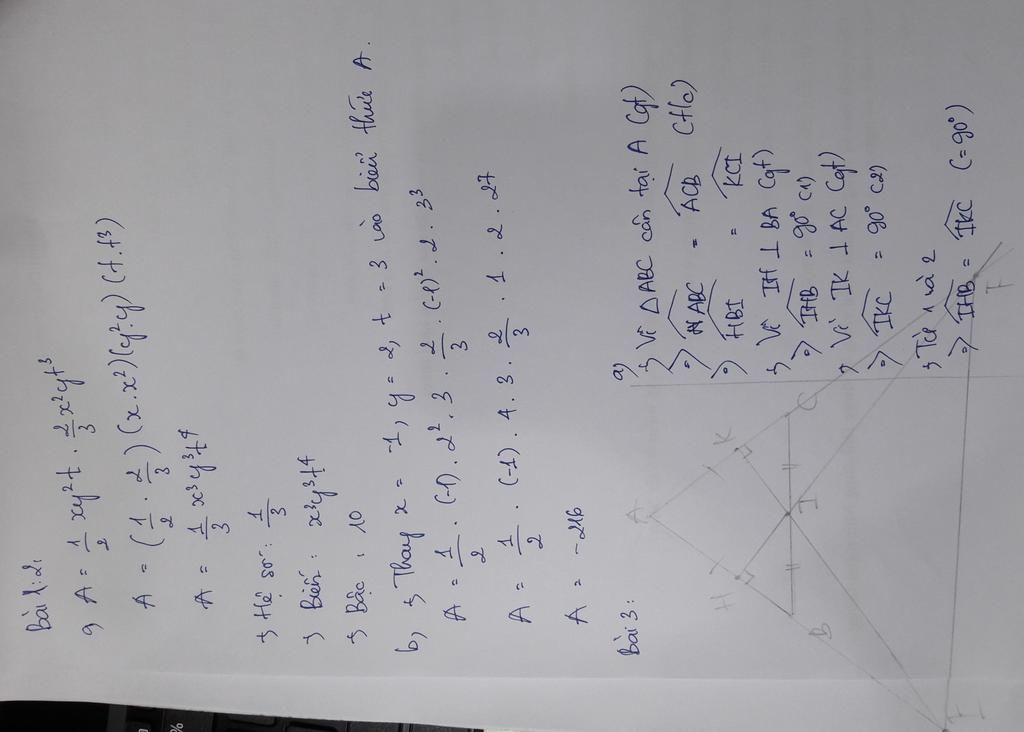 Bài 1:2:
a, A = 1/2 xy²t . 2/3 x²yt³
A = (1/2 . 2/3) (x.x²)(y².y) (t.t³)
A = 1/3 x³y³t⁴
Hệ số: 1/3
Biến: x³y³t⁴
Bậc: 10
b, Thay x = -1, y = 2, t = 3 vào biểu thức A.
A = 1/2 . (-1) . 2² . 3 . 2/3 . (-1)² . 2 . 3³
A = 1/2 . (-1) . 4 . 3 . 2/3 . 1 . 2 . 27
A = -216
Bài 3:
A
H
K
B
I
C
E
F
a)
Vì △ABC cân tại A (gt)
=> ABC = ACB (t/c)
=> HBI = KCI
Vì IH ⊥ BA (gt)
=> IHB = 90° (1)
Vì IK ⊥ AC (gt)
=> IKC = 90° (2)
Từ 1 và 2
=> IHB = IKC (=90°)
%